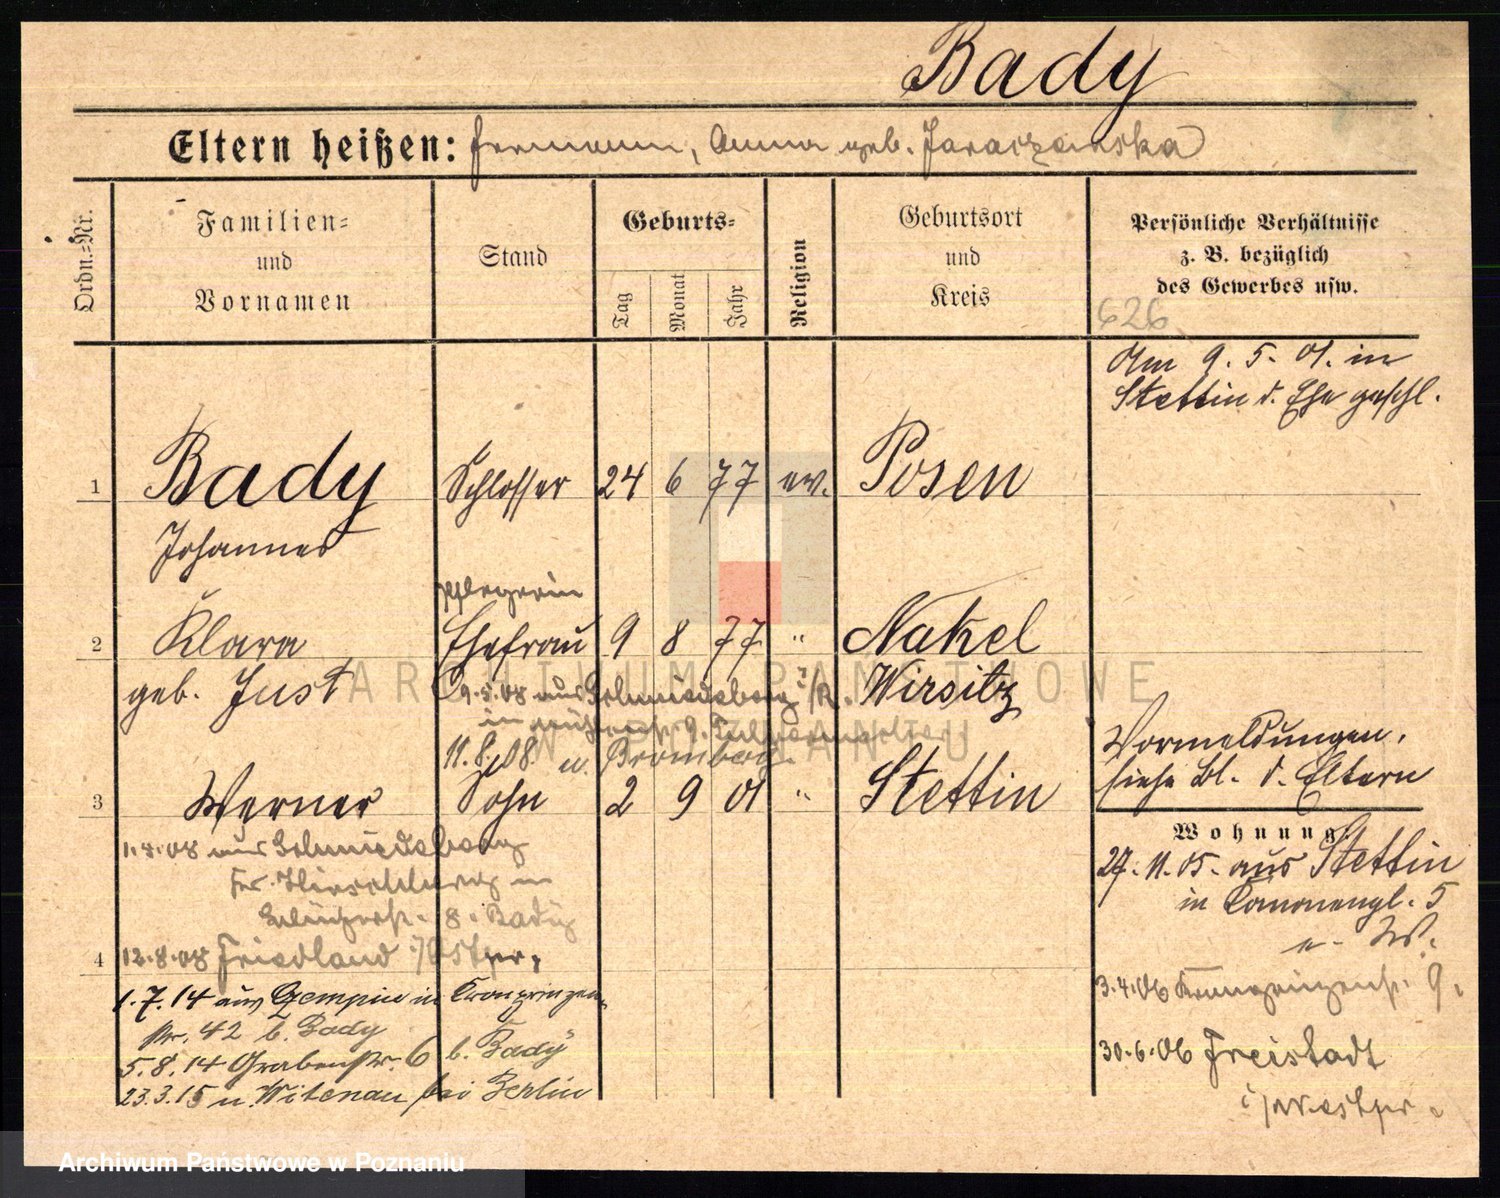 Bady
Eltern heißen: Hermann, Anna geb. Jaraczewska
Ordn.=Nr.
Familien=
und
Vornamen
Stand
Geburts=
Tag
Monat
Jahr
Religion
Geburtsort
und
Kreis
Persönliche Verhältnisse
z. B. bezüglich
des Gewerbes usw.
626
Am 9. 5. 01. in
Stettin d. Ehe geschl.
1 Bady Schlosser 24 6 77 ev. Posen
Johannes
Pflegerin
2 Klara Ehefrau 9 8 77 " Nakel
geb. Just 9.5.08 aus Schmiedeberg i/R. Wirsitz
11.8.08 n. Bromberg.
Vormeldungen,
siehe Bl. d. Eltern
3 Werner Sohn 2 9 01 " Stettin
1.4.08 aus Schmiedeberg
Kr. Hirschberg in
8. Bady
4 12.8.08 Friedland /Ostpr.
1.7.14 aus Zempin in Kronprinzen
str. 42 b. Bady
5.8.14 Grabenstr. 6 b. Bady
23.3.15 n. Witenau bei Berlin
Wohnung
27. 11. 05. aus Stettin
in Kanonengl. 5
n. W.
3.4.06 Kronprinzenstr. 9.
30.6.06 Freistadt
i/Westpr.
ARCHIWUM PAŃSTWOWE
W POZNANIU
Archiwum Państwowe w Poznaniu